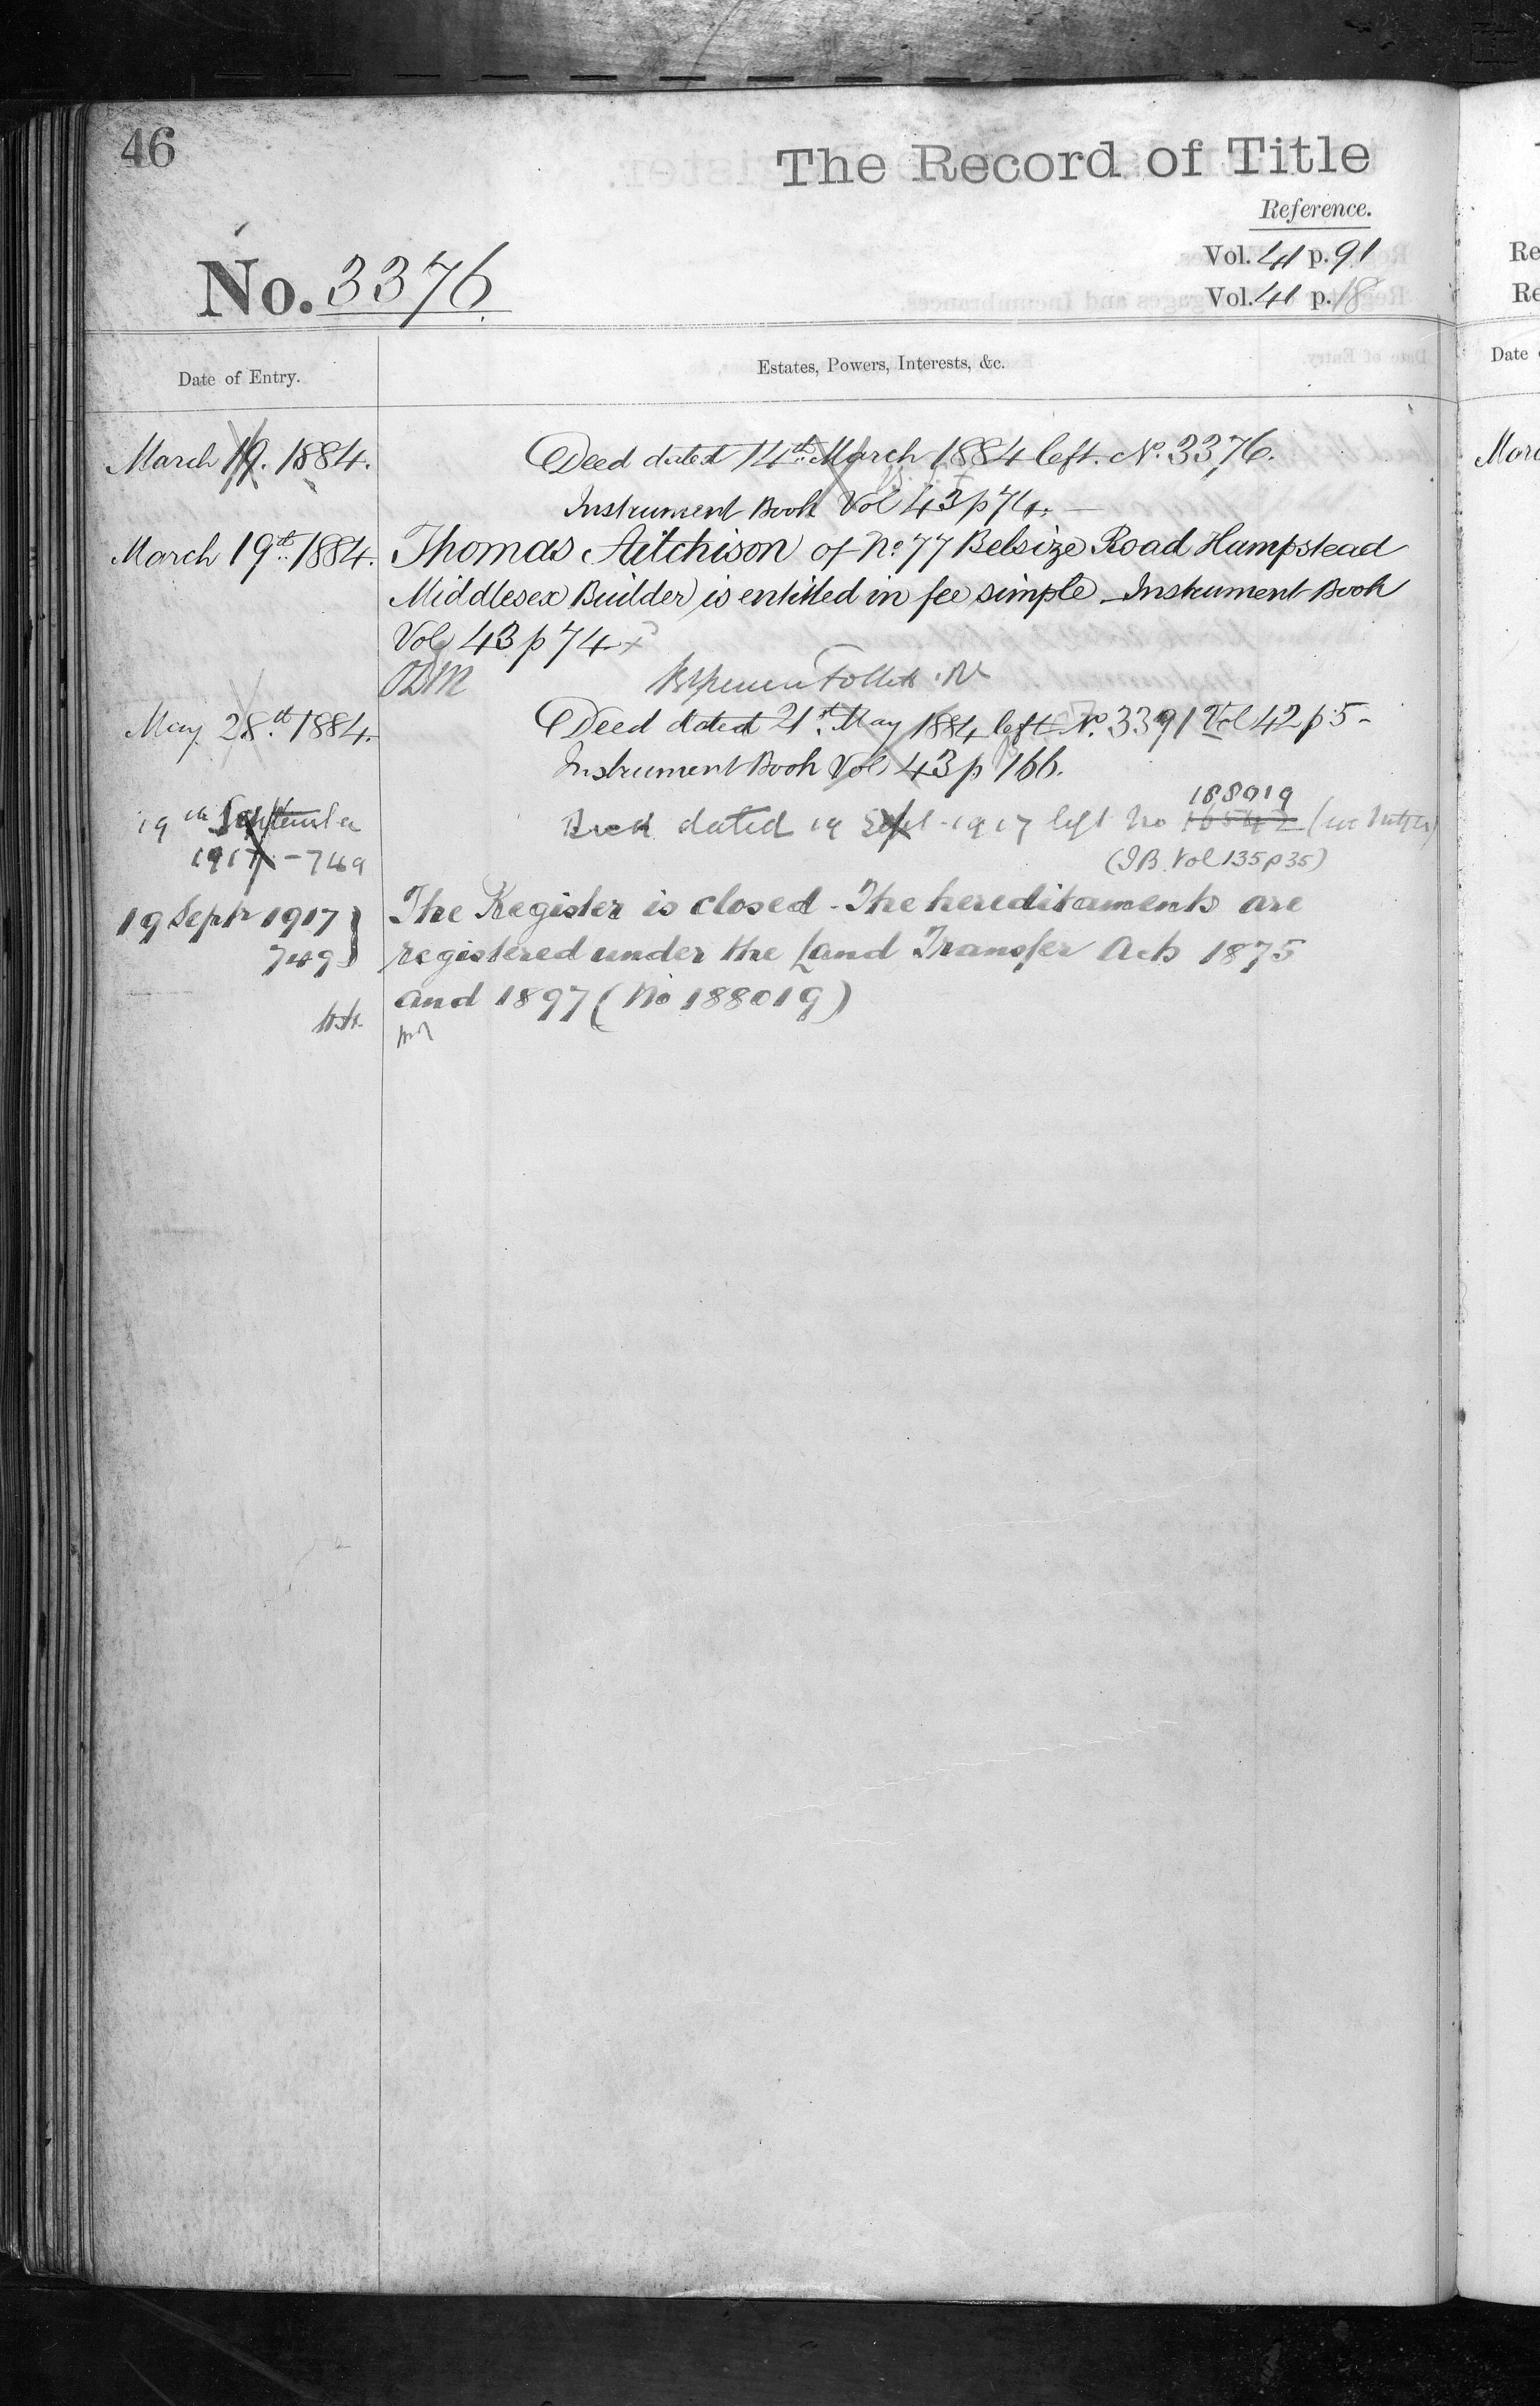 46
The Record of Title
Reference.
Vol. 41 p. 91
No. 3376
Vol. 41 p. 18
Date of Entry.
Estates, Powers, Interests, &c.
March 19. 1884.
Deed dated 14th March 1884 left. No. 3376.
Instrument Book Vol 43 p 74.
March 19th 1884.
Thomas Aitchison of No. 77 Belsize Road Hampstead
Middlesex Builder is entitled in fee simple Instrument Book
Vol 43 p 74
Follett
May 28th 1884.
Deed dated 21st May 1884 left No. 3391 Vol 42 p 5
Instrument Book Vol 43 p 166.
188019
19th September
dated 19 Sept 1917 left No
1917 - 749
(I.B. Vol 135 p 35)
19 Septr 1917
The Register is closed - The hereditaments are
749
registered under the Land Transfer Acts 1875
and 1897 (No 188019)
Re
Re
Date